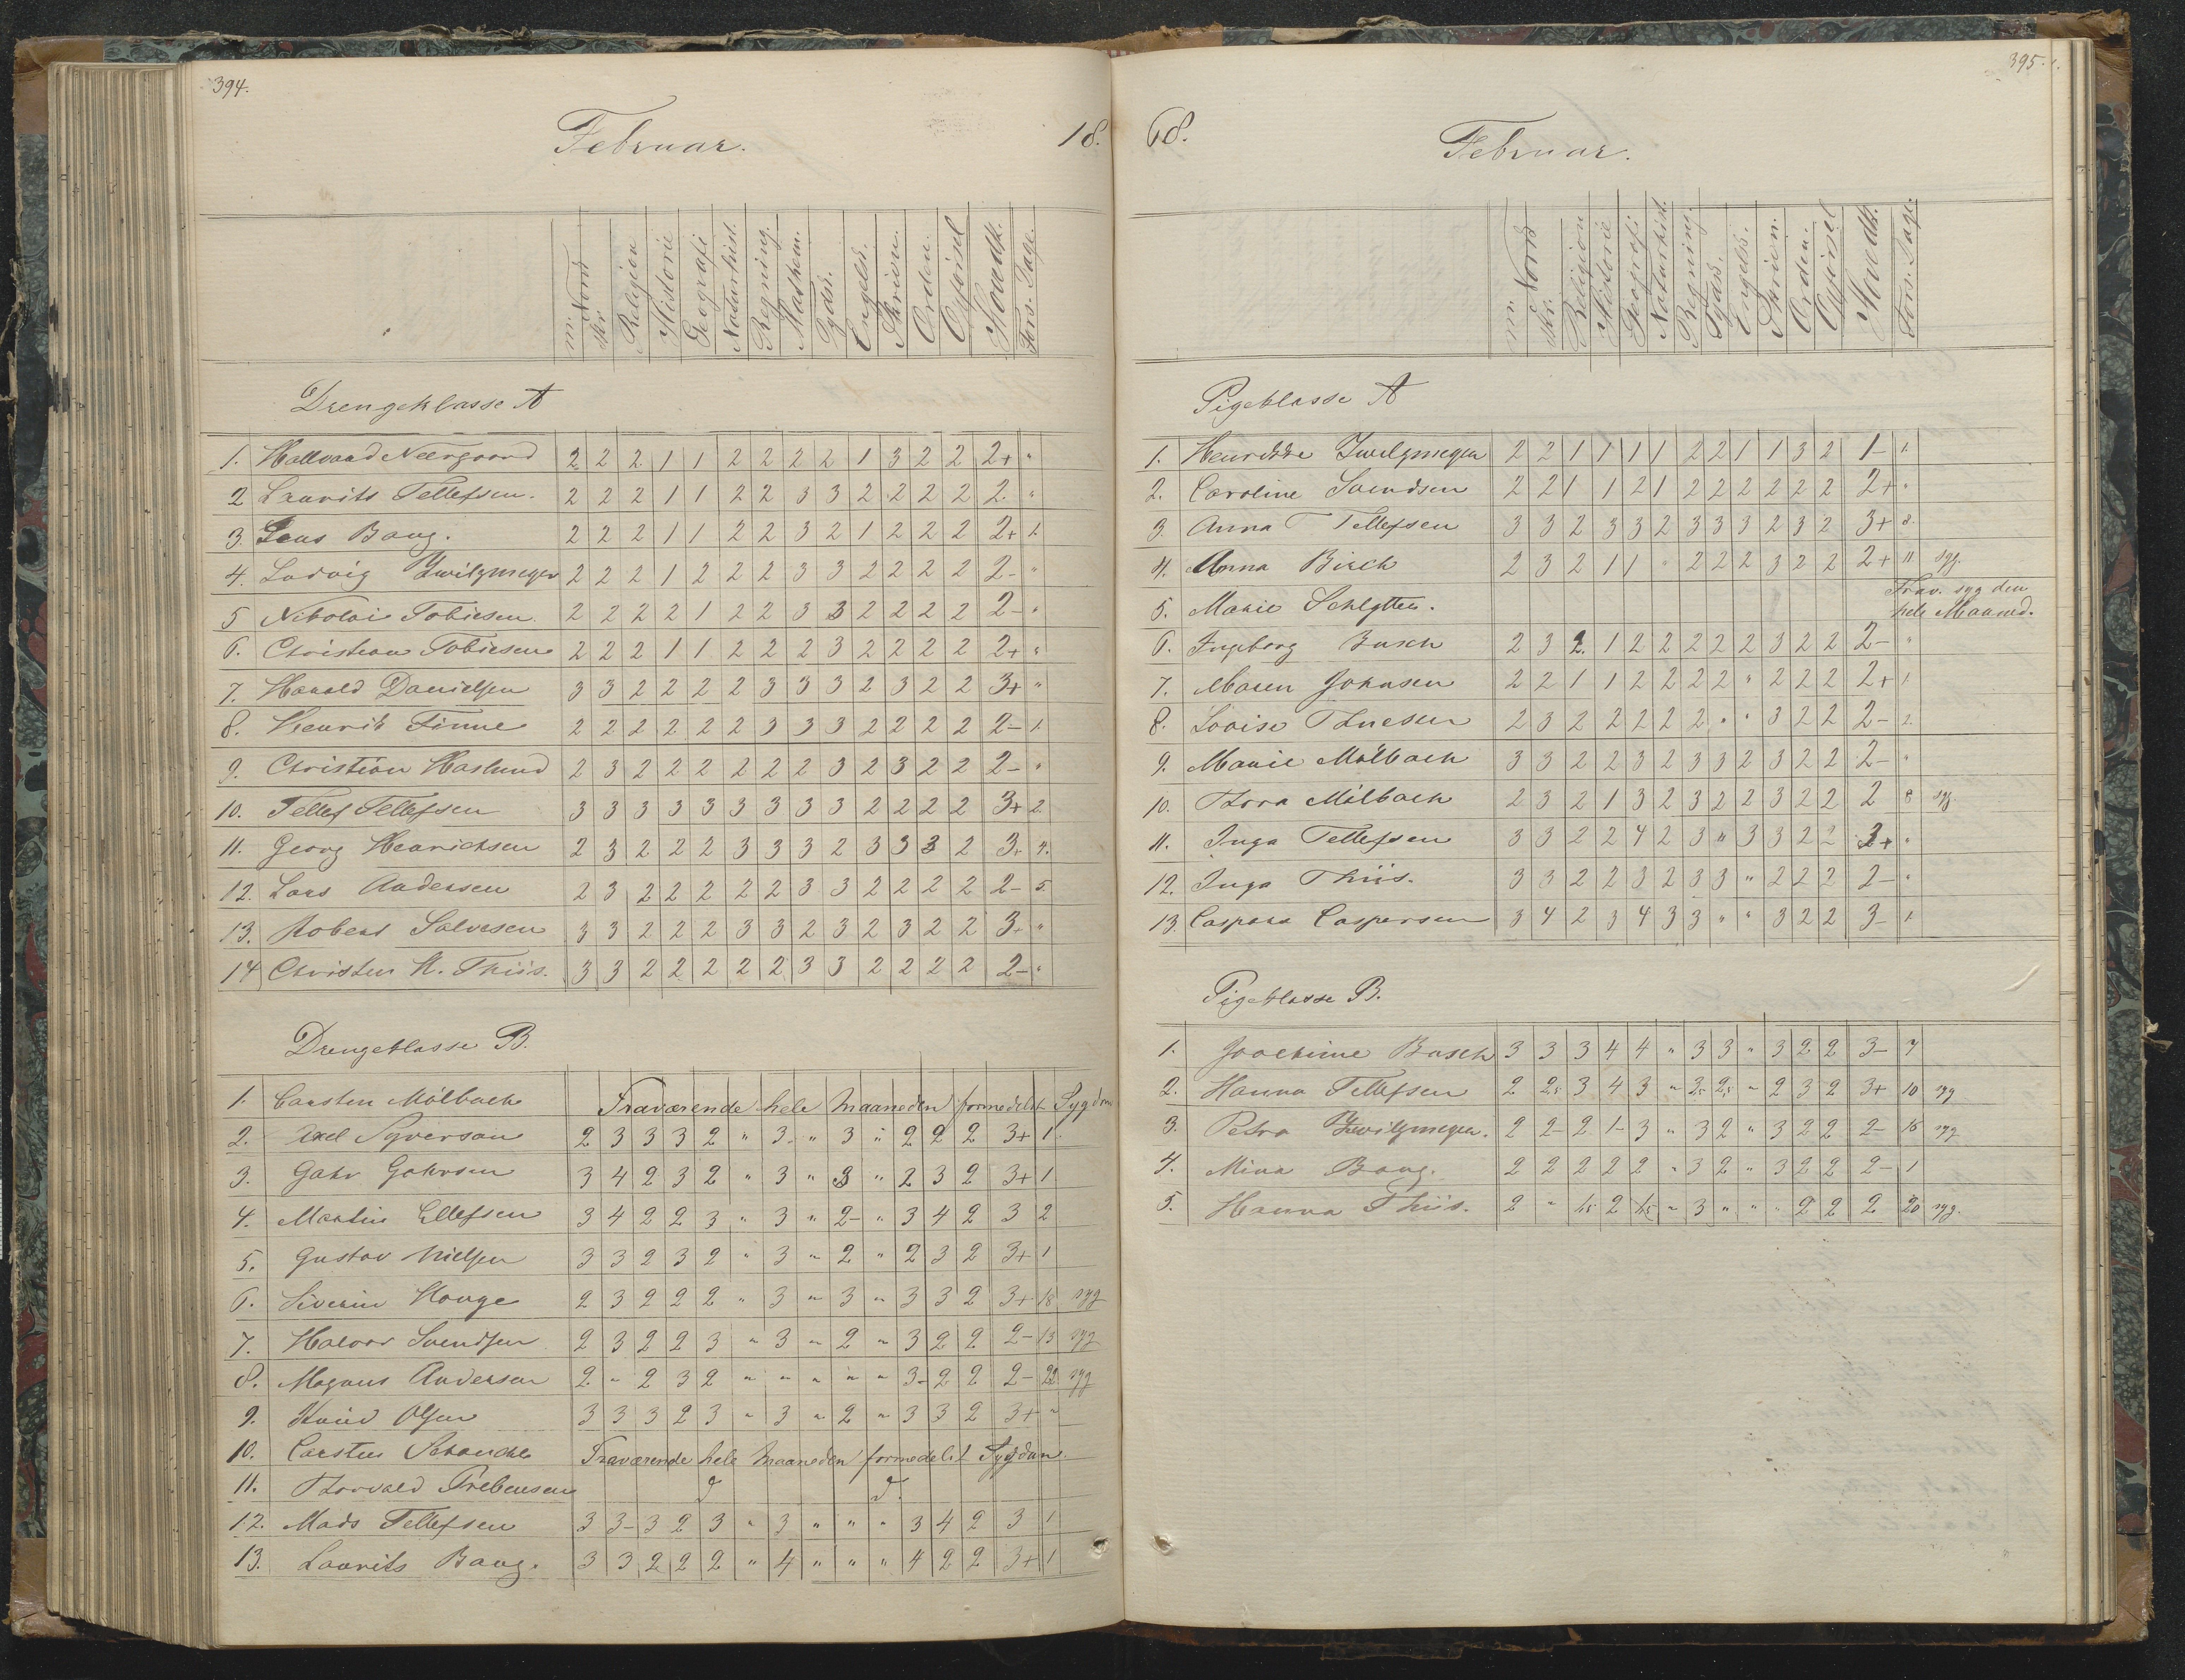 394.
Februar.
18.
m: Norsk skr. Religion Historie Geografi Naturhist. Regning. Mathem. Tydsk. Engelsk. Skrivn. Orden. Opførsel Hovedk. Fors. Dage.
Drengeklasse A
1. Hallvard Neergaard 2 2 2 1 1 2 2 2 2 1 3 2 2 2+ "
2 Laurits Tellefsen. 2 2 2 1 1 2 2 3 3 2 2 2 2 2. "
3. Jens Bang. 2 2 2 1 1 2 2 3 2 1 2 2 2 2+ 1.
4. Ludvig Zwilgmeyer 2 2 2 1 2 2 2 3 3 2 2 2 2 2- "
5 Nikolai Tobiesen. 2 2 2 2 1 2 2 3 3 2 2 2 2 2- "
6. Christian Tobiesen 2 2 2 1 1 2 2 2 3 2 2 2 2 2+ "
7. Harald Danielsen 3 3 2 2 2 2 3 3 3 2 3 2 2 3+ "
8. Henrik Finne 2 2 2 2 2 2 3 3 3 2 2 2 2 2- 1.
9. Christian Haslund 2 3 2 2 2 2 2 2 3 2 3 2 2 2- "
10. Tellef Tellefsen 3 3 3 3 3 3 3 3 3 2 2 2 2 3+ 2.
11. Georg Henrichsen 2 3 2 2 2 3 3 3 2 3 3 3 2 3+ 4.
12. Lars Andersen 2 3 2 2 2 2 2 3 3 2 2 2 2 2- 5.
13. Robert Salvesen 3 3 2 2 2 3 3 2 3 2 3 2 2 3+ "
14 Christen H. Thiis. 3 3 2 2 2 2 2 3 3 2 2 2 2 2- "
Drengeklasse B.
1. Carsten Mölbach Fraværende hele Maaneden formedelst Sygdom
2. Axel Syversen 2 3 3 3 2 " 3. " 3 " 2 2 2 3+ 1.
3. Gahr Gahrsen 3 4 2 3 2 " 3 " 3 " 2 3 2 3+ 1
4. Martin Ellefsen 3 4 2 2 3 " 3 " 2- " 3 4 2 3 2
5. Gustav Nielsen 3 3 2 3 2 " 3 " 2 " 2 3 2 3+ 1
6. Siverin Hauge 2 3 2 2 2 " 3 " 3 " 3 3 2 3+ 18 syg
7. Halvor Svendsen 2 3 2 2 3 " 3 " 2 " 3 2 2 2- 13 syg
8. Magnus Andersen 2. " 2 3 2 " " " " " 3- 2 2 2- 22. syg
9. Knud Olsen 3 3 3 2 3 " 3 " 2 " 3 3 2 3+ "
10. Carsten Schanche Fraværende hele Maaneden formedelst Sygdom.
11. Thorvald Prebensen d d.
12. Mads Tellefsen 3 3- 3 2 3 " 3 " " " 3 4 2 3 1
13. Laurits Bang. 3 3 2 2 2 " 4 " " " 4 2 2 3+ 1
395.
68.
Februar.
m: Norsk skr. Religion Historie Geografi Naturhist. Regning. Tydsk. Engelsk. Skrivn. Orden. Opførsel Hovedk. Fors. Dage.
Pigeklasse A
1. Henrikke Zwilgmeyer 2 2 1 1 1 1 2 2 1 1 3 2 1- 1.
2. Caroline Svendsen 2 2 1 1 2 1 2 2 2 2 2 2 2+ "
3. Anna Tellefsen 3 3 2 3 3 2 3 3 3 2 3 2 3+ 8.
4. Anna Birch 2 3 2 1 1 " 2 2 2 3 2 2 2+ 11 syg.
5. Marie Schlytter. Frav. syg den hele Maaned.
6. Ingeborg Busch 2 3 2. 1 2 2 2 2 2 3 2 2 2- "
7. Maren Johnsen 2 2 1 1 2 2 2 2 " 2 2 2 2+ 1.
8. Lovise Thuesen 2 3 2 2 2 2 2 " " 3 2 2 2- 2.
9. Marie Mölbach 3 3 2 2 3 2 3 3 2 3 2 2 2- "
10. Thora Mölbach 2 3 2 1 3 2 3 2 2 3 2 2 2 8 syg
11. Inga Tellefsen 3 3 2 2 4 2 3 " 3 3 2 2 3+ "
12. Inga Thiis. 3 3 2 2 3 2 3 3 " 2 2 2 2- "
13. Caspara Caspersen 3 4 2 3 4 3 3 " " 3 2 2 3- 1.
Pigeklasse B.
1. Joachime Busch 3 3 3 4 4 " 3 3 " 3 2 2 3- 7
2. Hanna Tellefsen 2 2,5 3 4 3 " 2,5 2,5 " 2 3 2 3+ 10 syg
3. Petra Zwilgmeyer. 2 2- 2 1- 3 " 3 2 " 3 2 2 2- 16 syg
4. Mina Bang. 2 2 2 2 2 " 3 2 " 3 2 2 2- 1
5. Hanna Thiis. 2 " 1,5 2 1,5 " 3 " " " 2 2 2 20 syg.